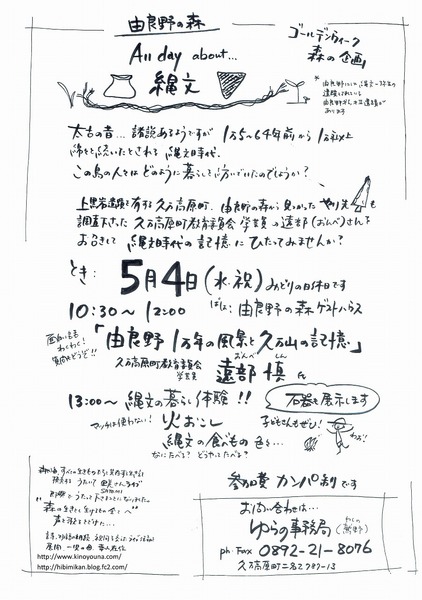 由良野の森
ゴールデンウィーク
森の企画
All day about...
縄文
太古の昔... 諸説あるようですが 1万5~6千年前から 1万年以上
綿々と続いたとされる 縄文時代.
この島の人々は どのように暮らしを紡いでいたのでしょうか?
上黒岩遺跡を有する 久万高原町. 由良野の森から 見つかった やり先も
調査下さった 久万高原町教育委員会 学芸員の 遠部(おんべ)さんを
お招きして 縄文時代の記憶に ひたってみませんか?
とき: 5月4日(水・祝) みどりの日 休日です
10:30~12:00 ばしょ: 由良野の森 ゲストハウス
面白い話
わくわく!
質問もどうぞ!!
「由良野 1万年の風景と 久万山の記憶」
久万高原町教育委員会
学芸員
おんべ しん
遠部 慎 氏
13:00~ 縄文の暮らし体験!!
石器も展示します
マッチは使わない! 火おこし
子どもさんもぜひ!
縄文の食べもの 色々...
なにたべる? どうやってたべる?
参加費 カンパ制です
お問い合わせは...
ゆらの事務局
ph・Fax 0892-21-8076
久万高原町二名乙787-13
http://www.kinoyouna.com/
http://hibimikan.blog.fc2.com/